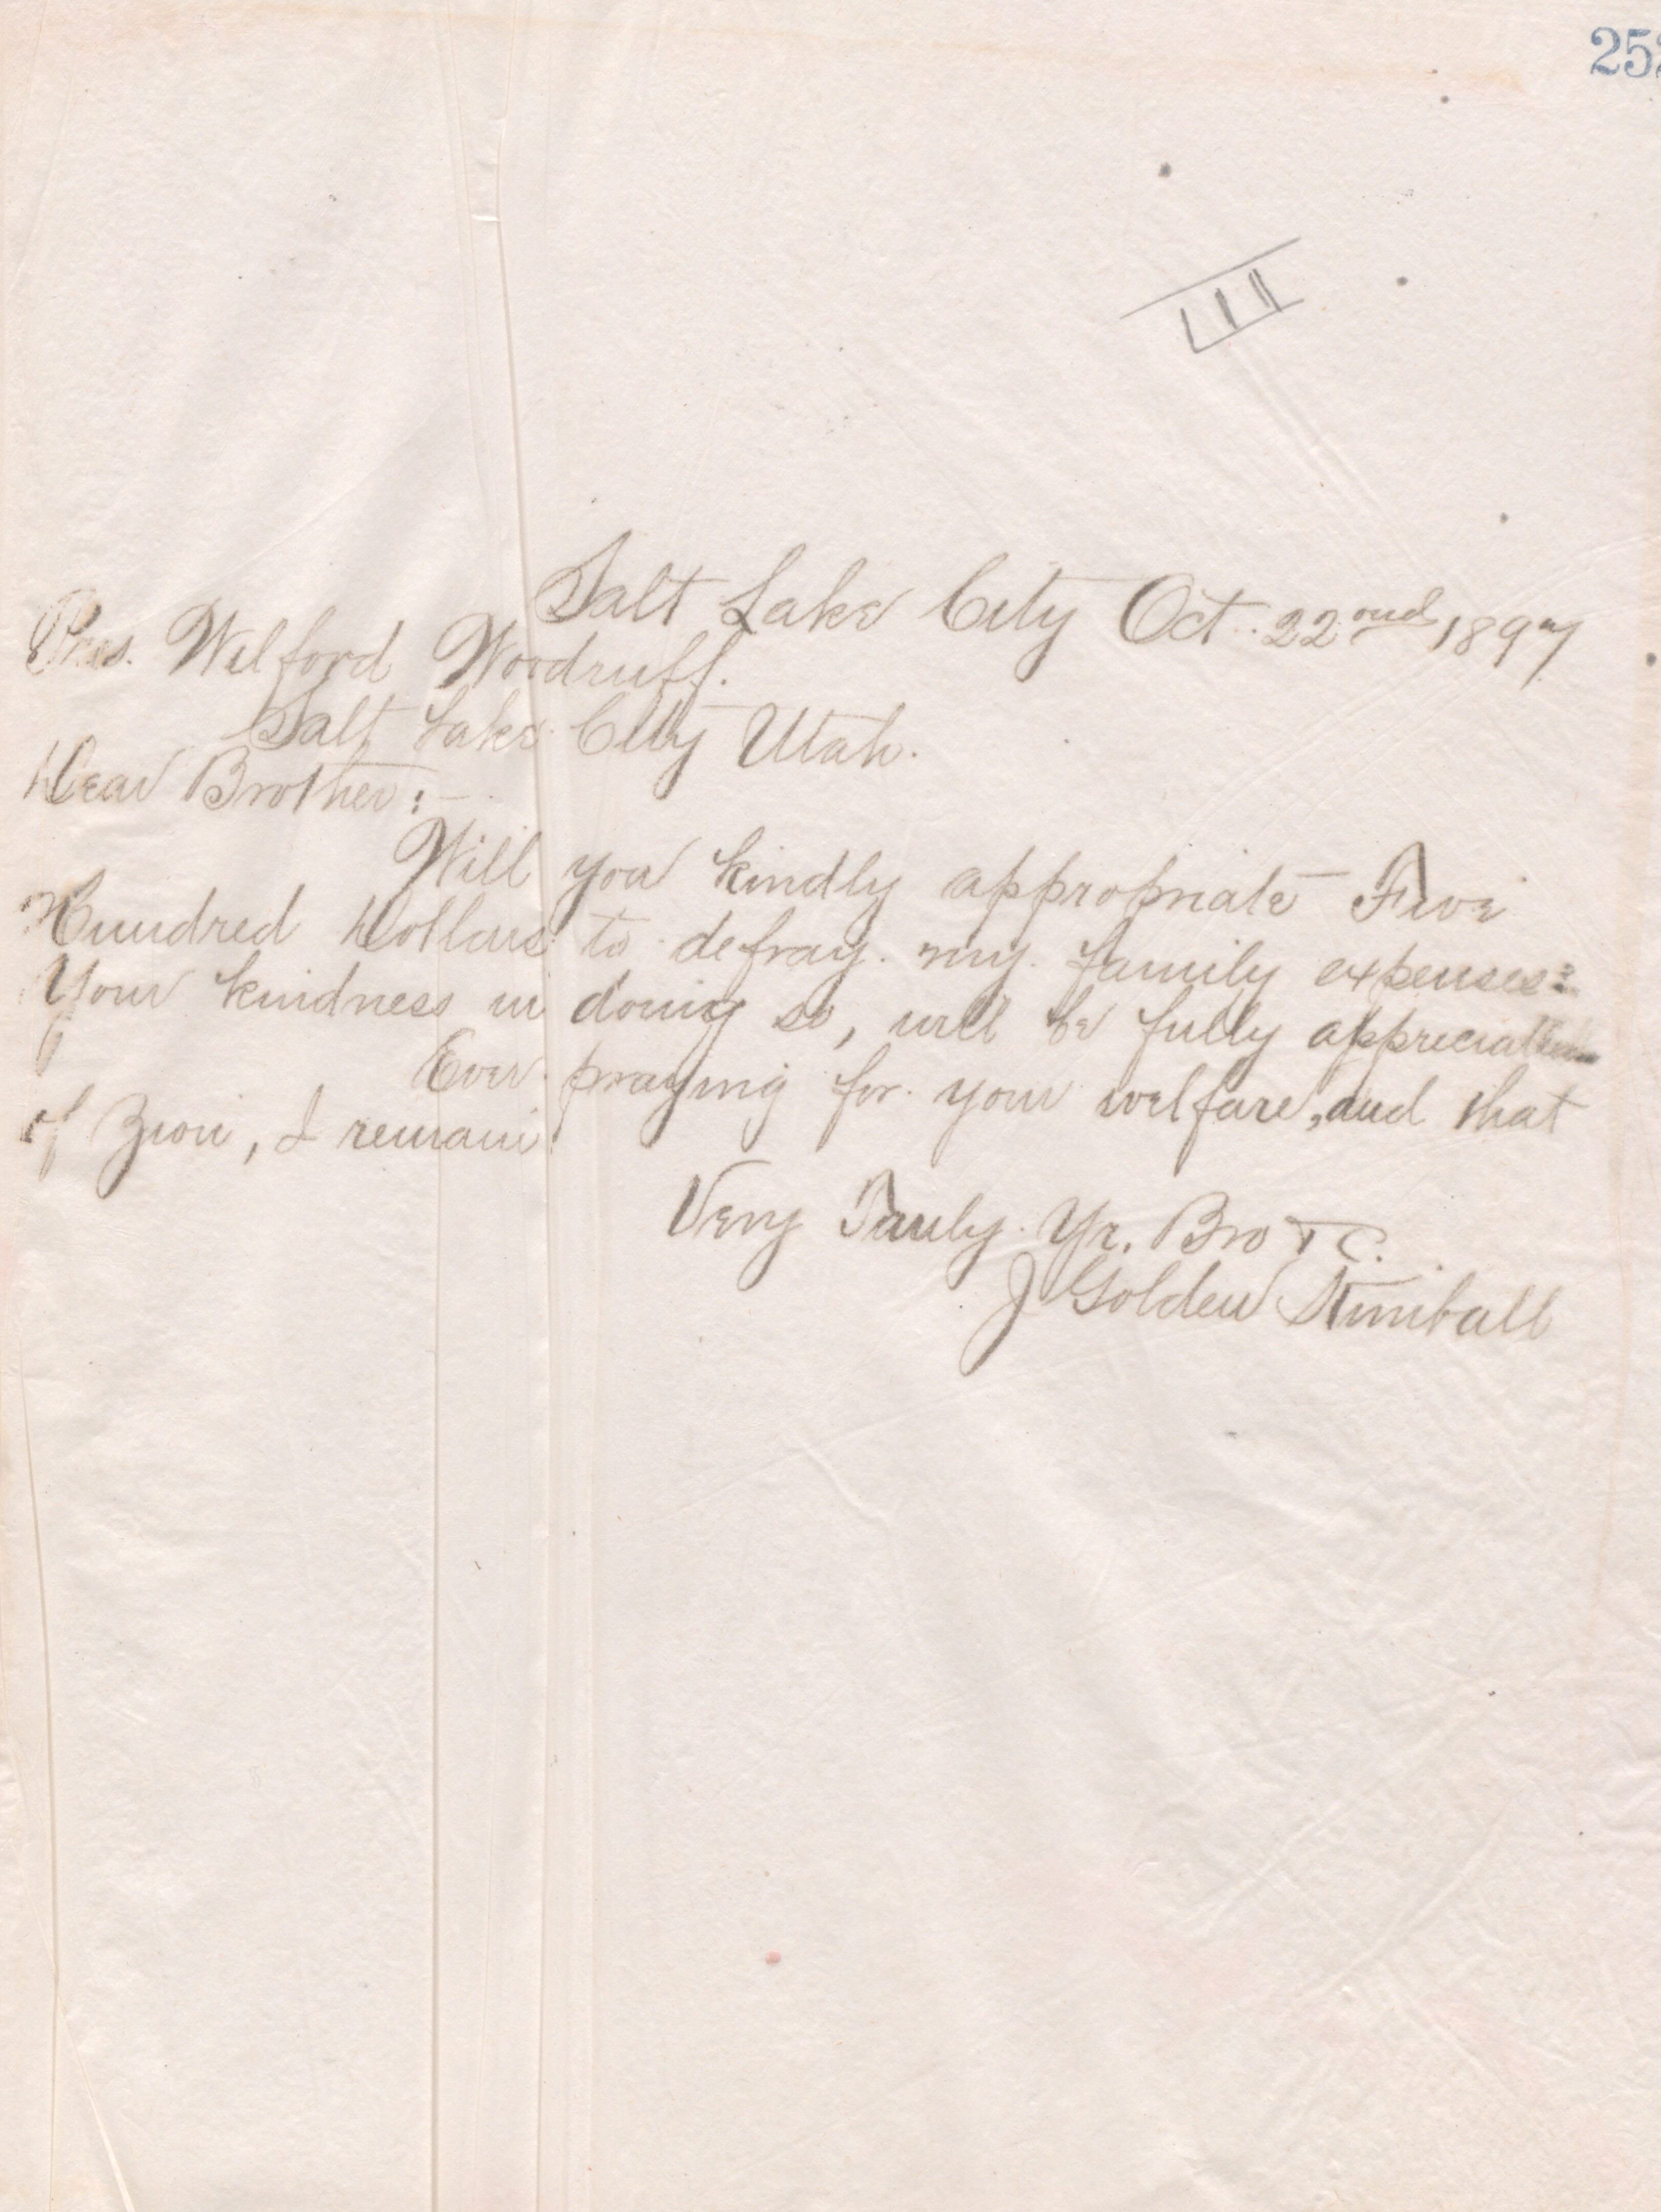 Salt Lake City Oct. 22ond, 1897
Pres. Wilford Woodruff.
Salt Lake City Utah.
Dear Brother:-
Will you kindly appropriate Five
Hundred Dollars to defray my family expenses:
Your kindness in doing so, will be fully appreciated
Ever praying for your welfare, and that
of Zion, I remain
Very Truly Yr. Bro
J Golden Kimball